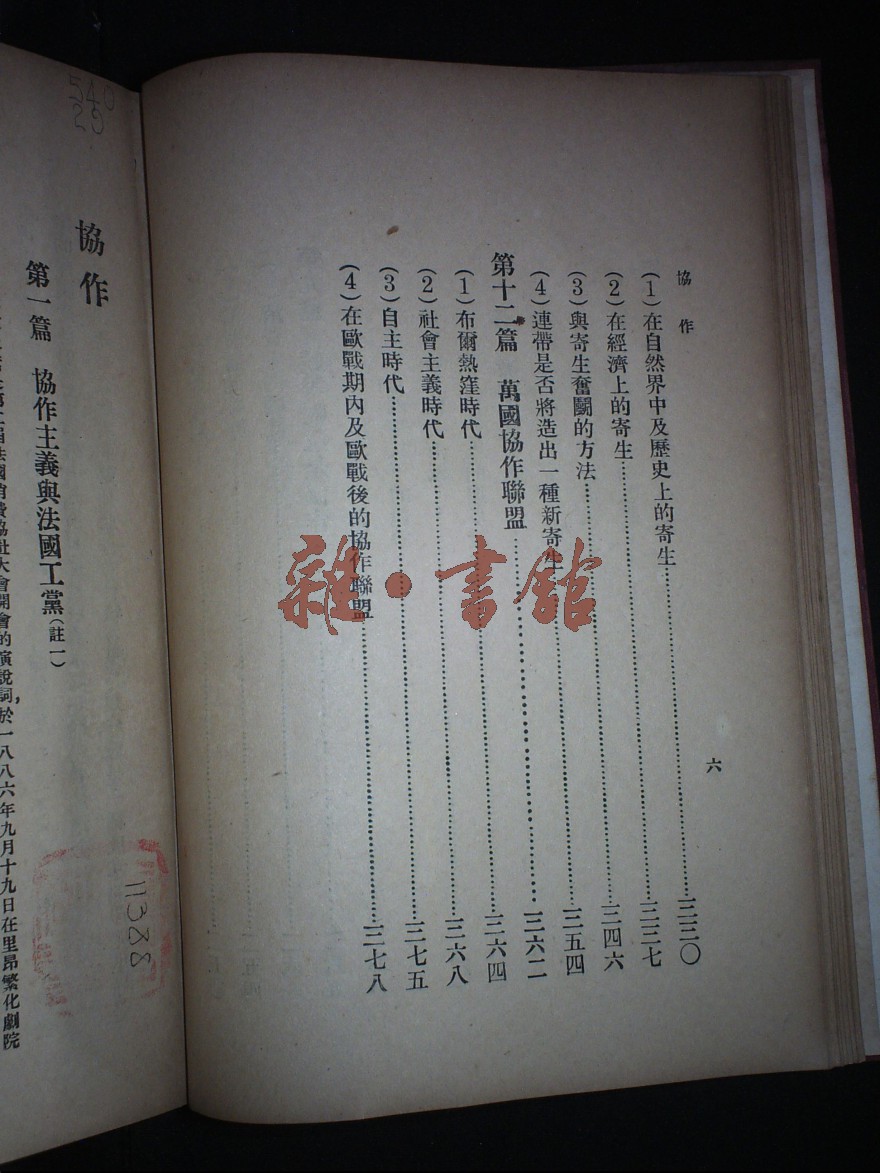 協作
(1)在自然界中及歷史上的寄生……三三〇
(2)在經濟上的寄生……三三七
(3)與寄生奮鬭的方法……三四六
(4)連帶是否將造出一種新寄生……三五四
第十二篇 萬國協作聯盟……三六二
(1)布爾熱窪時代……三六四
(2)社會主義時代……三六八
(3)自主時代……三七五
(4)在歐戰期內及歐戰後的協作聯盟……三七八
六
雜·書館
協作
第一篇 協作主義與法國工黨(註一)
法國消費協社大會開會的演說詞,於一八八六年九月十九日在里昂繁化劇院
540
25
11388